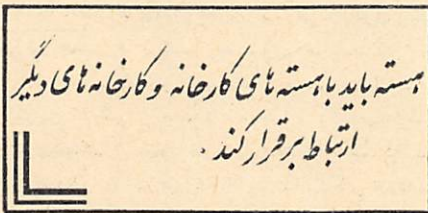 هسته باید با هسته های کارخانه و کارخانه های دیگر
ارتباط برقرار کند .